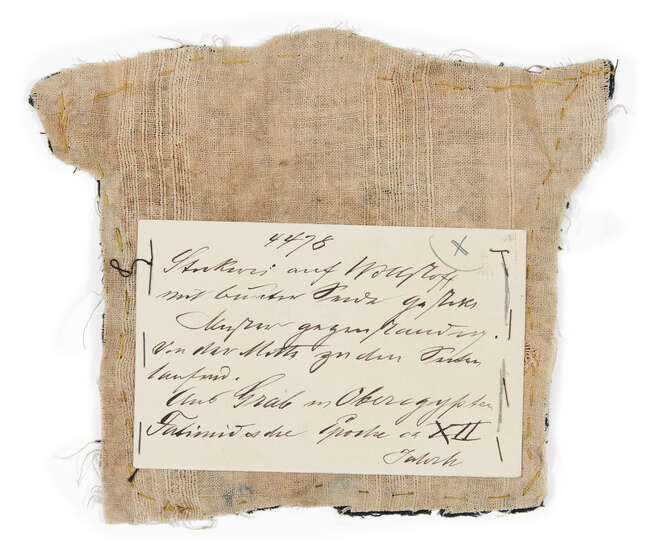 4478
X
Stickerei auf Wollstoff
mit bunter Seide gestickt
Muster gegenständig.
Von der Mitte zu den Seiten
laufend.
Aus Grab in Oberegypten
Fatimidische Epoche ca XII
Jahrh